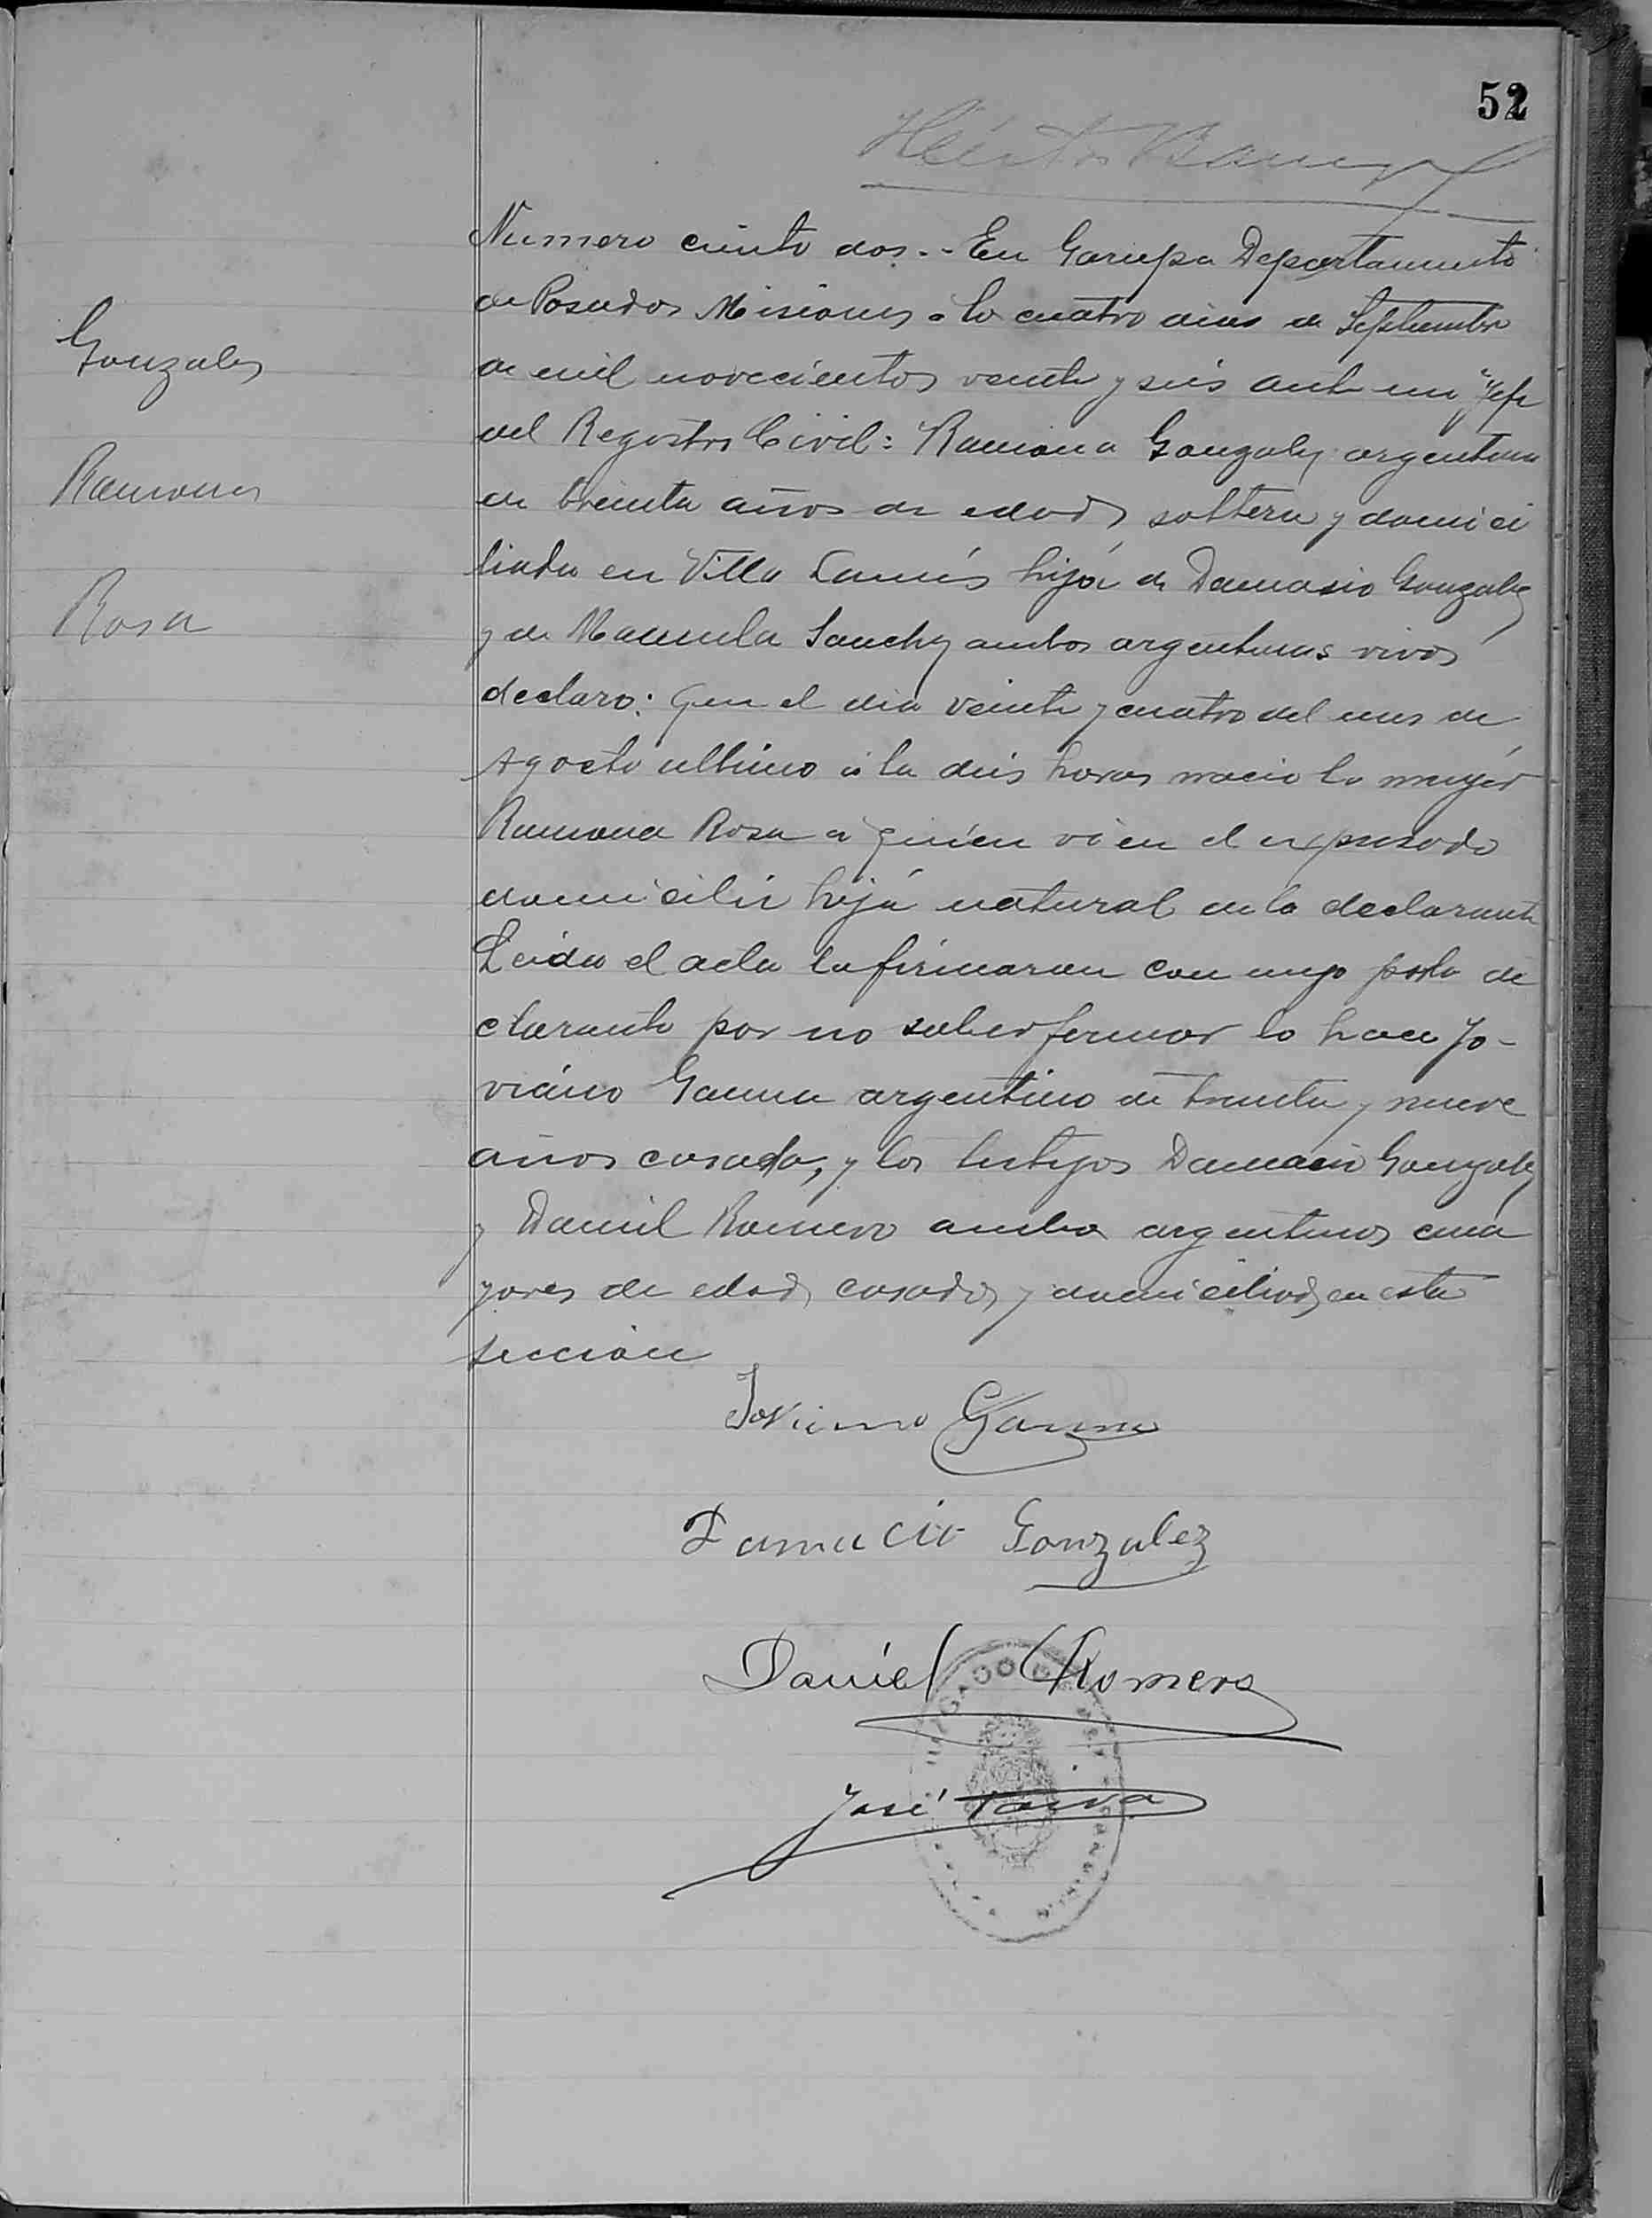 52
Numero ciento dos.- En Garupa Departamento
de Posadas Misiones a los cuatro dias de Septiembre
de mil novecientos veinte y seis ante mi Jefe
del Registro Civil: Ramona Gonzalez argentina
de treinta años de edad, soltera y domici
liada en Villa Lanús hija de Damasio Gonzalez
y de Manuela Sanchez ambos argentinos vivos
declaro: Que el dia veinte y cuatro del mes de
Agosto ultimo a la dies horas nacio la mujer
Ramona Rosa a quien vi en el expresado
domicilio hija natural de la declarante
Leida el acta la firmaron con migo por la de
clarante por no saber firmar lo hace Jo-
viano Gauna argentino de treinta y nueve
años casado, y los testigos Damacio Gonzalez
y Daniel Romero ambos argentinos ma
yores de edad, casados y domiciliados en esta
seccion
Gonzalez
Ramona
Rosa
Joviano Gauna
Damacio Gonzalez
Daniel Romero
José Paiva
JUZGADO DE PAZ